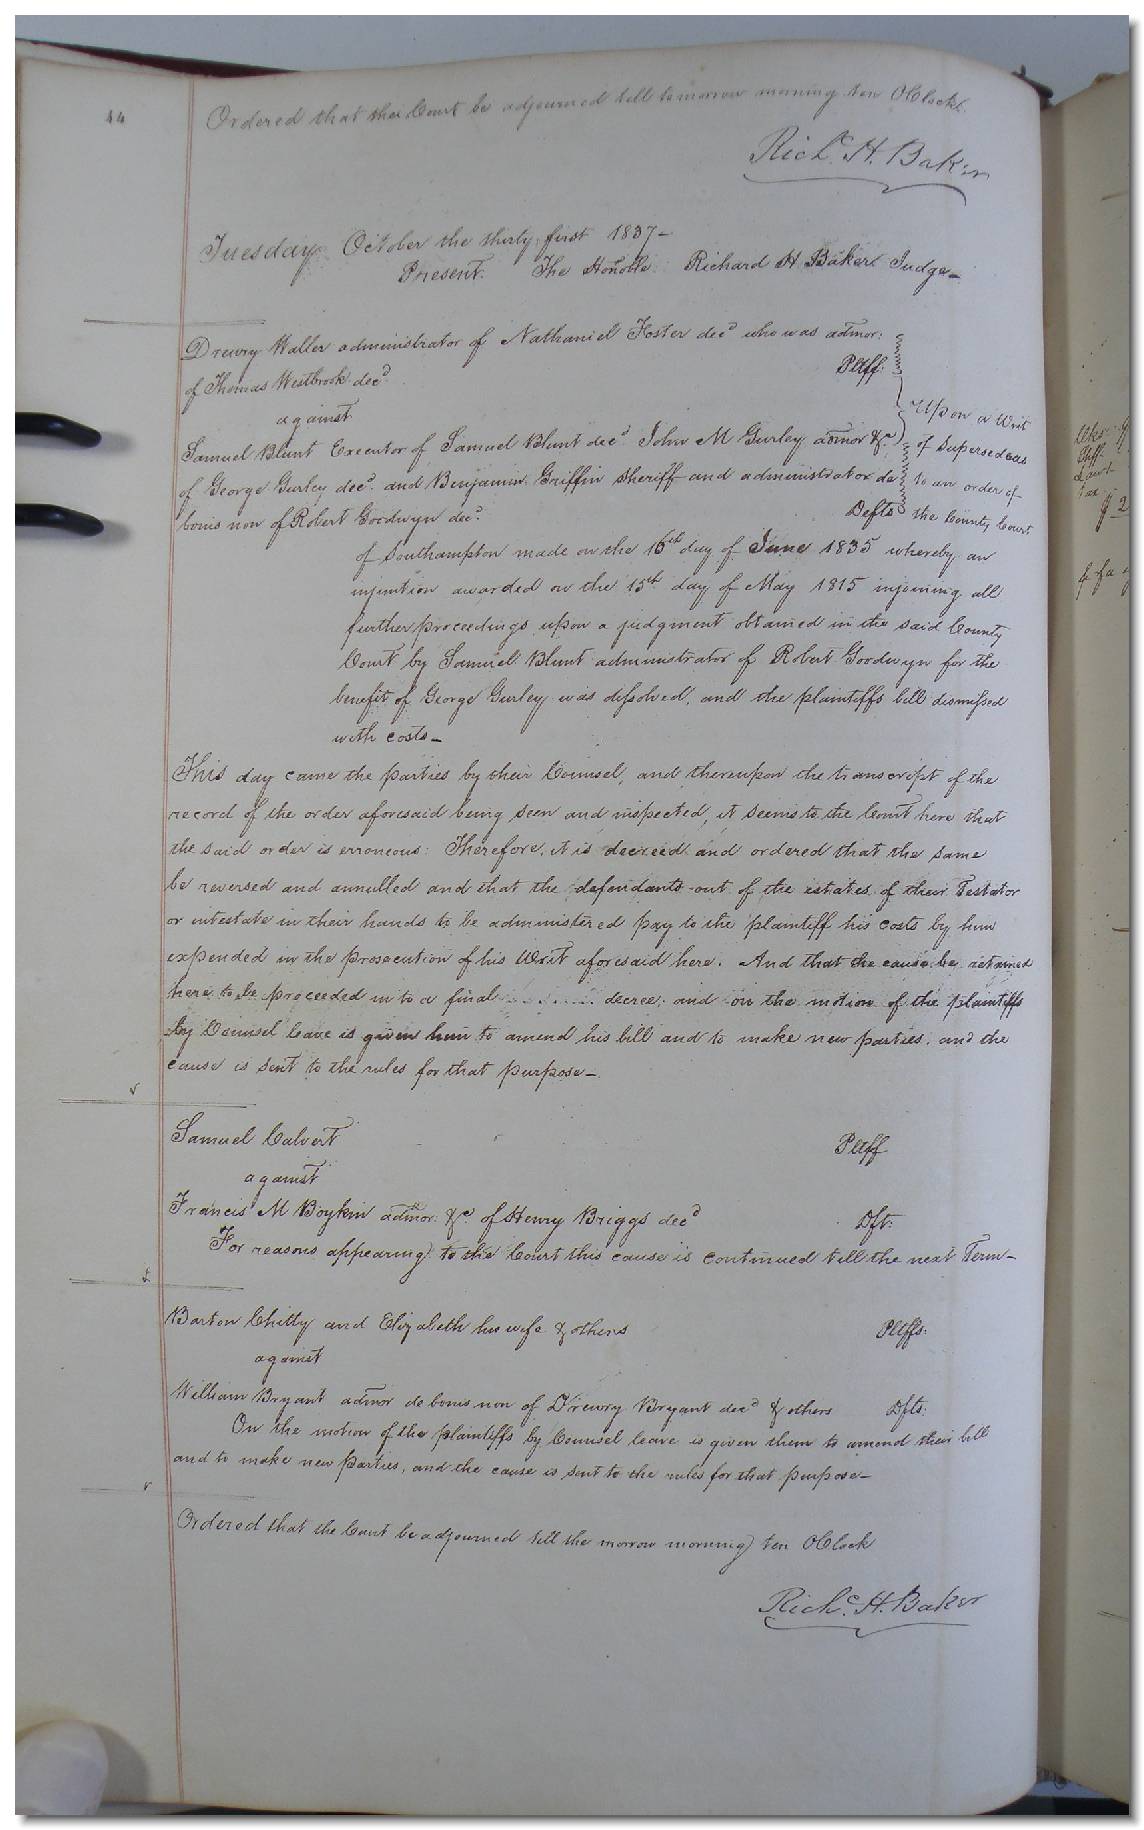 44
Ordered that the Court be adjourned till tomorrow morning ten OClock.
Richd. H. Baker
Tuesday October the thirty first 1837-
Present. The Honoble. Richard H Baker Judge-
Drewry Waller administrator of Nathaniel Foster decd who was admor:
of Thomas Westbrook decd. Pltff:
against
Samuel Blunt Executor of Samuel Blunt decd John M Gurley admor &c.
of George Gurley decd. and Benjamin Griffin Sheriff and administrator de
bonis non of Robert Goodwyn decd. Defts
Upon a Writ
of Supersedeas
to an order of
the County Court
of Southampton made on the 16th day of June 1835 whereby an
injunction awarded on the 15th day of May 1815 injoining all
further proceedings upon a judgment obtained in the said County
Court by Samuel Blunt administrator of Robert Goodwyn for the
benefit of George Gurley was dissolved, and the plaintiffs bill dismissed
with costs-
This day came the parties by their Counsel, and thereupon the transcript of the
record of the order aforesaid being seen and inspected, it seems to the Court here that
the said order is erroneous: Therefore, it is decreed and ordered that the same
be reversed and annulled and that the defendants out of the estates of their Testator
or intestate in their hands to be administered pay to the plaintiff his costs by him
expended in the prosecution of his Writ aforesaid here. And that the cause be retained
here to be proceeded in to a final decree: and on the motion of the plaintiffs
by Counsel leave is given him to amend his bill and to make new parties, and the
cause is sent to the rules for that purpose-
Samuel Calvert Pltff
against
Francis M Boykin admor: &c. of Henry Briggs decd Dft:
For reasons appearing to the Court this cause is continued till the next Term-
Barton Chitty and Elizabeth his wife & others Pltffs:
against
William Bryant admor de bonis non of Drewry Bryant decd & others Dfts:
On the motion of the plaintiffs by Counsel leave is given them to amend their bill
and to make new parties, and the cause is sent to the rules for that purpose-
Ordered that the Court be adjourned till the morrow morning ten OClock
Richd. H. Baker